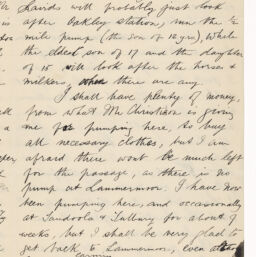 Lairds will probably just look
after Oakley station, run the ½
mile pump (the son of 12 yrs), while
the eldest son of 17 and the daughter
of 15 will look after the horses &
milkers, when there are any.
I shall have plenty of money,
from what Mr Christison is giving
me for pumping here, to buy
all necessary clothes, but I am
afraid there won't be much left
for the passage, as there is no
pump at Lammermoor. I have now
been pumping here, and occasionally
at Landoola & Tallury for about 9
weeks, but I shall be very glad to
get back to Lammermoor, even